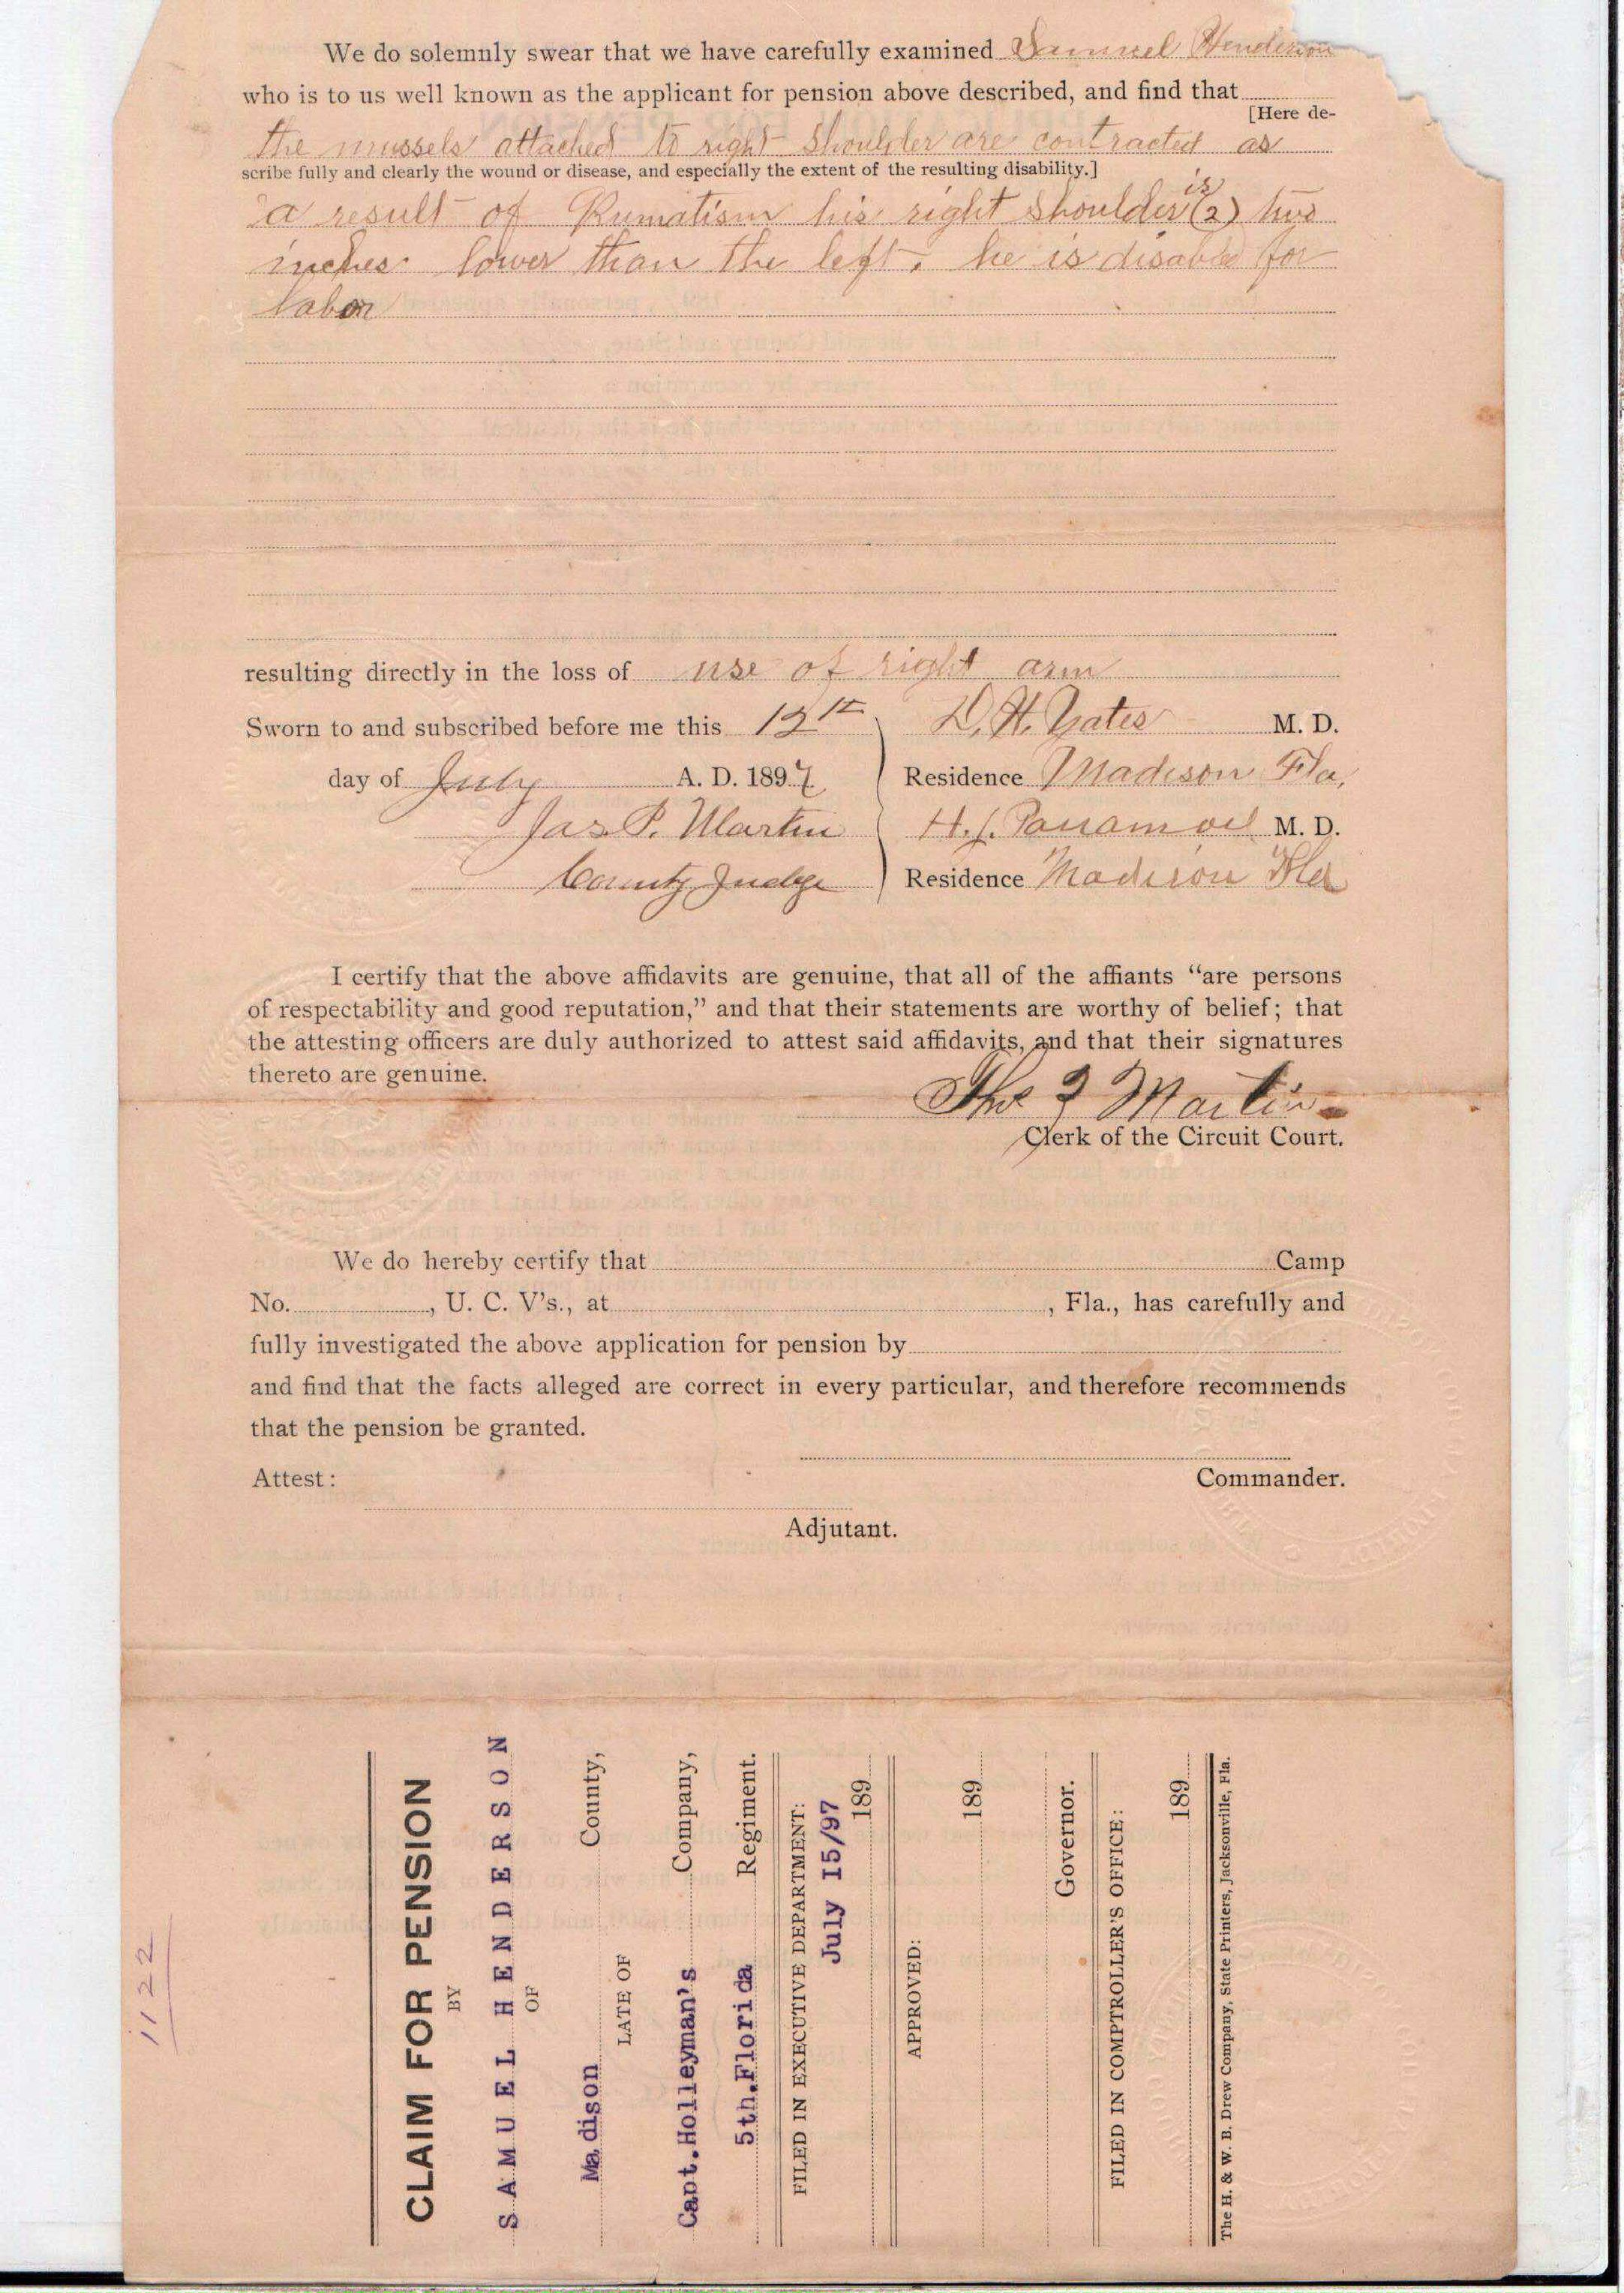 We do solemnly swear that we have carefully examined Samuel Henderson
who is to us well known as the applicant for pension above described, and find that
[Here de-
the mussels attached to right shoulder are contracted as
scribe fully and clearly the wound or disease, and especially the extent of the resulting disability.]
a result of Rumatism his right shoulder is (2) two
inches lower than the left. he is disabled for
labor
resulting directly in the loss of use of right arm
Sworn to and subscribed before me this 12th D. H. Yates M. D.
day of July A. D. 1897 Residence Madison Fla,
Jas. P. Martin H. M. D.
County Judge Residence Madison Fla
I certify that the above affidavits are genuine, that all of the affiants “are persons
of respectability and good reputation,” and that their statements are worthy of belief; that
the attesting officers are duly authorized to attest said affidavits, and that their signatures
thereto are genuine.
Martin
Clerk of the Circuit Court.
We do hereby certify that Camp
No. , U. C. V's., at , Fla., has carefully and
fully investigated the above application for pension by
and find that the facts alleged are correct in every particular, and therefore recommends
that the pension be granted.
Attest: Commander.
Adjutant.
1122
CLAIM FOR PENSION
BY
SAMUEL HENDERSON
OF
Madison County,
LATE OF
Capt.Holleyman's Company,
5th.Florida Regiment.
FILED IN EXECUTIVE DEPARTMENT:
July 15/97
189
APPROVED:
189
Governor.
FILED IN COMPTROLLER'S OFFICE:
189
The H. & W. B. Drew Company, State Printers, Jacksonville, Fla.